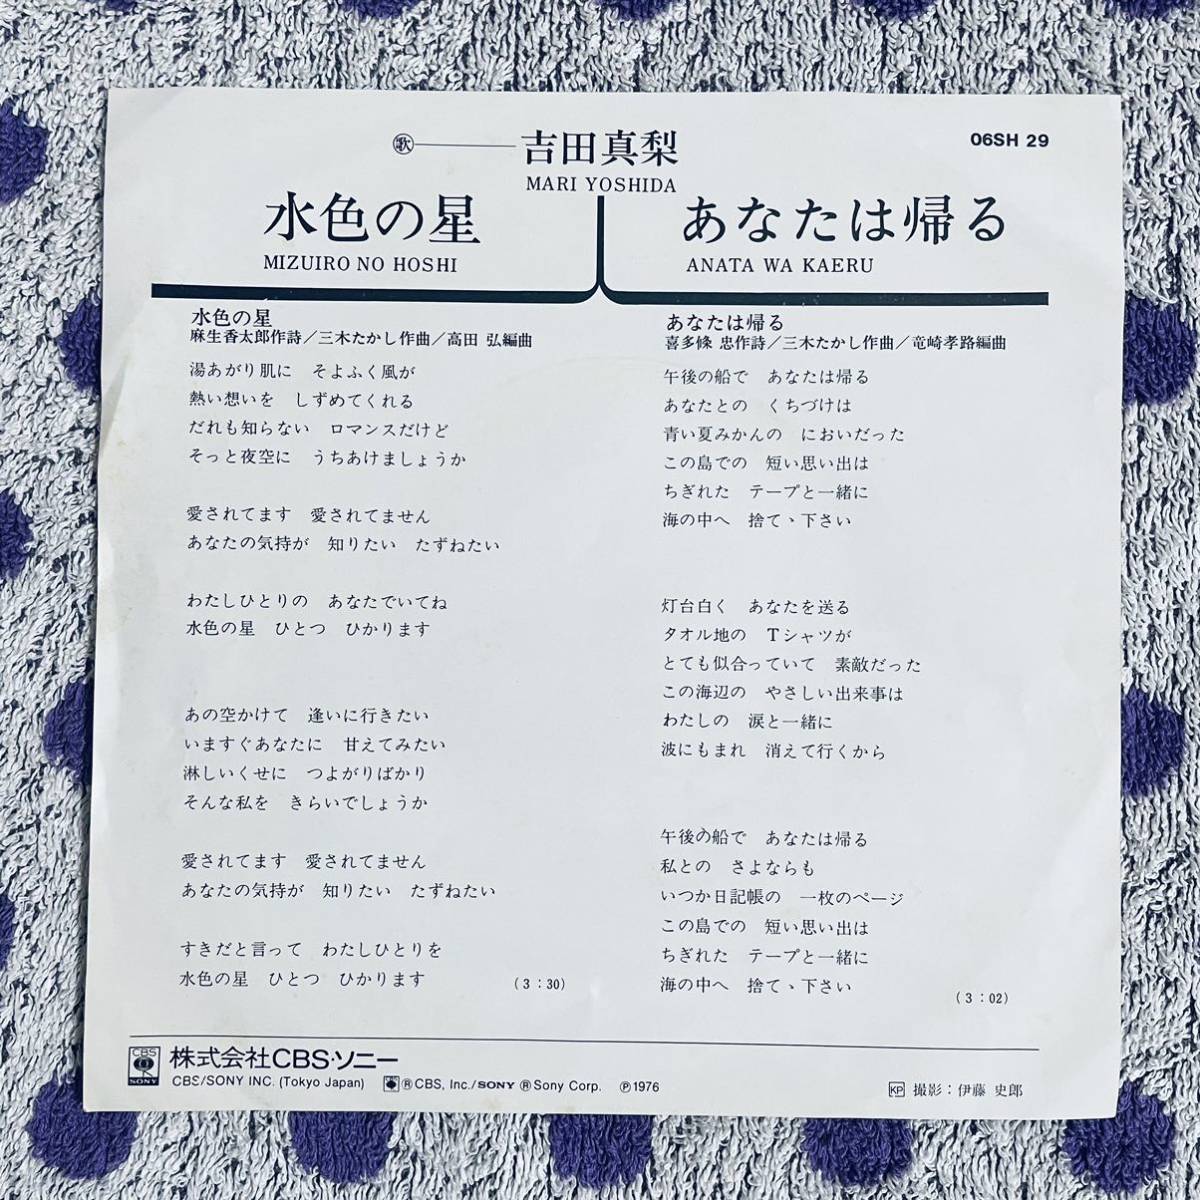 ㊙歌 吉田真梨
06SH 29
MARI YOSHIDA
水色の星
MIZUIRO NO HOSHI
あなたは帰る
ANATA WA KAERU
水色の星
麻生香太郎作詩／三木たかし作曲／高田 弘編曲
湯あがり肌に　そよふく風が
熱い想いを　しずめてくれる
だれも知らない　ロマンスだけど
そっと夜空に　うちあけましょうか
愛されてます　愛されてません
あなたの気持が　知りたい　たずねたい
わたしひとりの　あなたでいてね
水色の星　ひとつ　ひかります
あの空かけて　逢いに行きたい
いますぐあなたに　甘えてみたい
淋しいくせに　つよがりばかり
そんな私を　きらいでしょうか
愛されてます　愛されてません
あなたの気持が　知りたい　たずねたい
すきだと言って　わたしひとりを
水色の星　ひとつ　ひかります
(3：30)
あなたは帰る
喜多條 忠作詩／三木たかし作曲／竜崎孝路編曲
午後の船で　あなたは帰る
あなたとの　くちづけは
青い夏みかんの　においだった
この島での　短い思い出は
ちぎれた　テープと一緒に
海の中へ　捨てゝ下さい
灯台白く　あなたを送る
タオル地の　Tシャツが
とても似合っていて　素敵だった
この海辺の　やさしい出来事は
わたしの　涙と一緒に
波にもまれ　消えて行くから
午後の船で　あなたは帰る
私との　さよならも
いつか日記帳の　一枚のページ
この島での　短い思い出は
ちぎれた　テープと一緒に
海の中へ　捨てゝ下さい
(3：02)
CBS SONY
株式会社CBS・ソニー
CBS/SONY INC. (Tokyo Japan) ®CBS, Inc./SONY ®Sony Corp. ℗1976
KP 撮影：伊藤 史郎